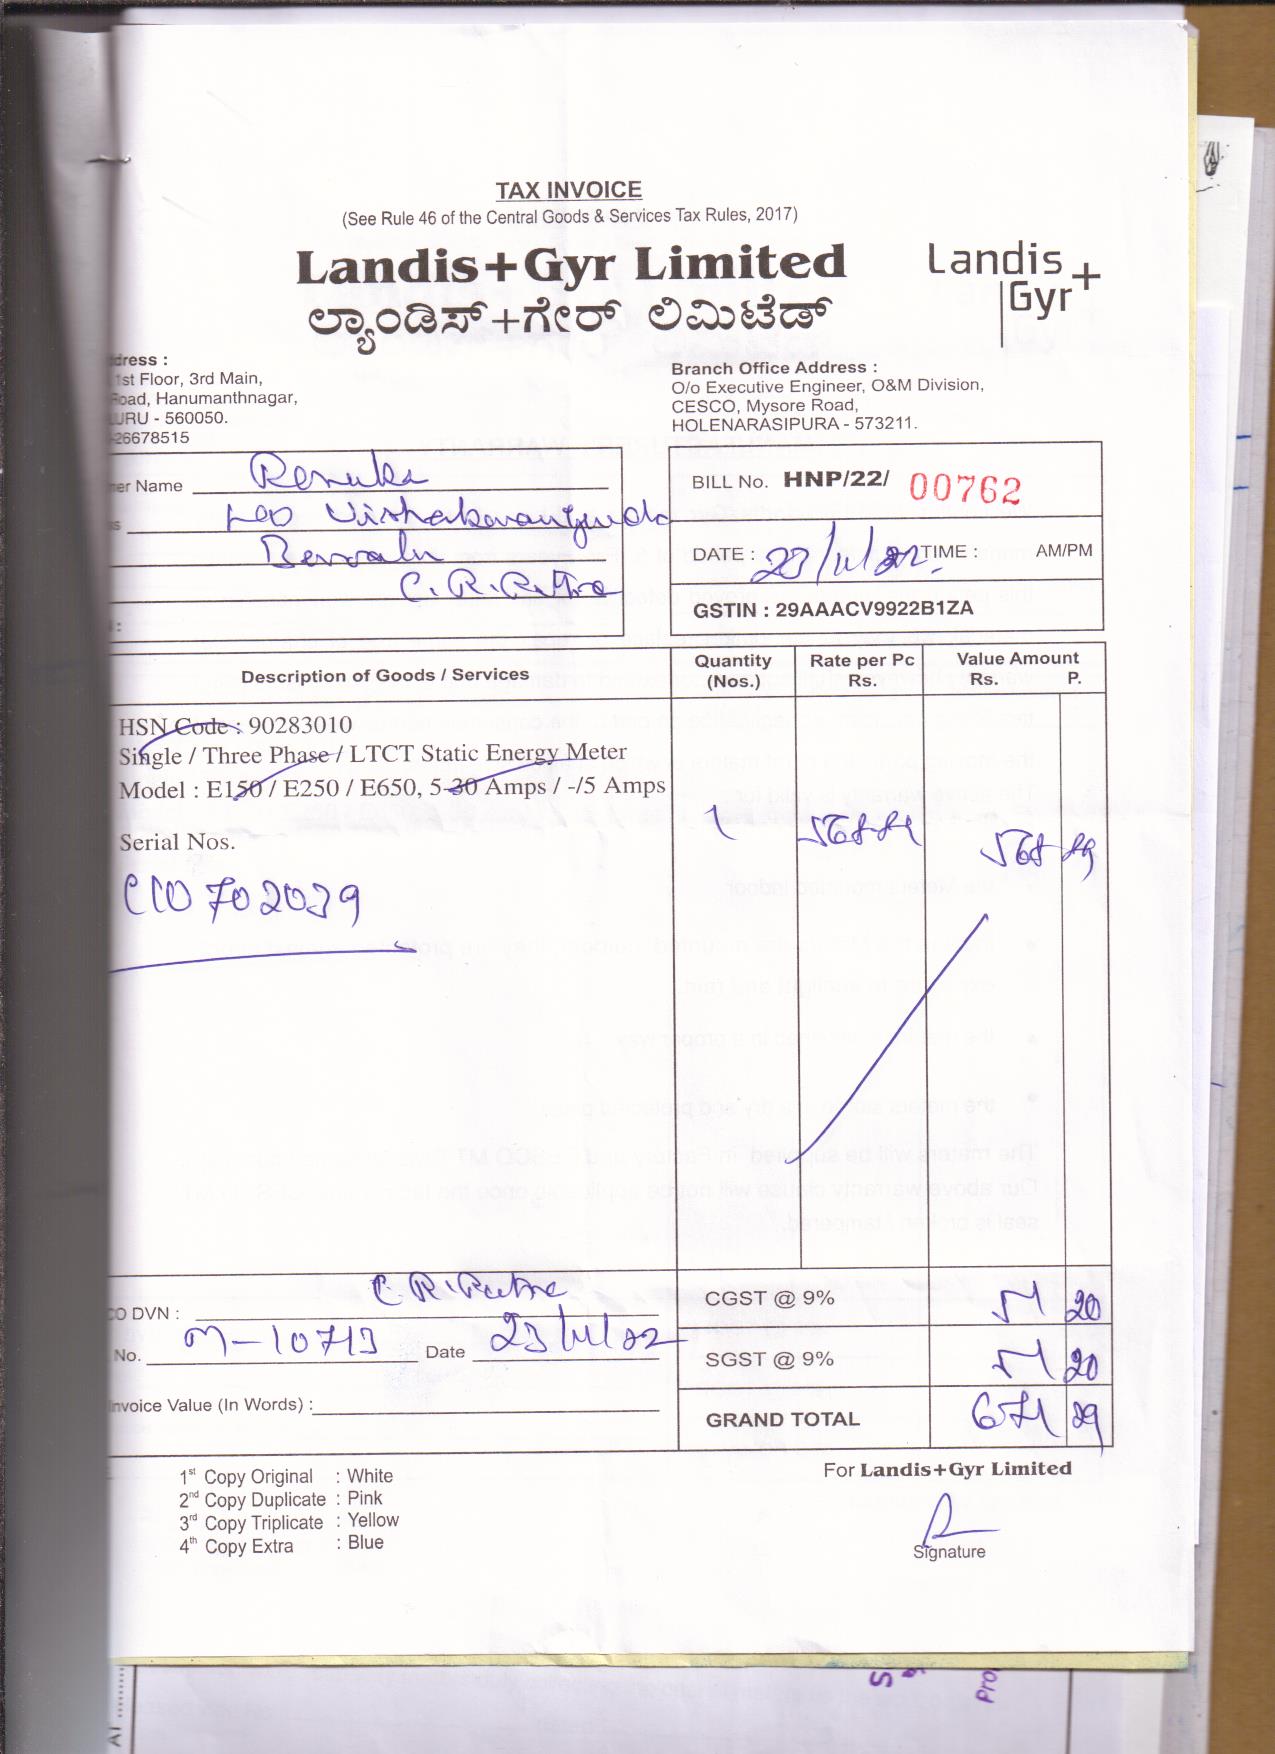 TAX INVOICE
(See Rule 46 of the Central Goods & Services Tax Rules, 2017)
Landis+Gyr Limited
ಲ್ಯಾಂಡಿಸ್+ಗೇರ್ ಲಿಮಿಟೆಡ್
Landis
Gyr+
dress :
1st Floor, 3rd Main,
Road, Hanumanthnagar,
URU - 560050.
26678515
Branch Office Address :
O/o Executive Engineer, O&M Division,
CESCO, Mysore Road,
HOLENARASIPURA - 573211.
er Name Renuka
C. R. Patna
BILL No. HNP/22/ 00762
DATE : 23/11/22 TIME : AM/PM
GSTIN : 29AAACV9922B1ZA
Description of Goods / Services
Quantity (Nos.)
Rate per Pc Rs.
Value Amount Rs. P.
HSN Code : 90283010
Single / Three Phase / LTCT Static Energy Meter
Model : E150 / E250 / E650, 5-30 Amps / -/5 Amps
1
Serial Nos.
C10702039
O DVN : C R Patna
No. M-10713 Date 23/11/22
nvoice Value (In Words) :
CGST @ 9% 51 20
SGST @ 9% 51 20
GRAND TOTAL 671 29
1st Copy Original : White
2nd Copy Duplicate : Pink
3rd Copy Triplicate : Yellow
4th Copy Extra : Blue
For Landis+Gyr Limited
Signature